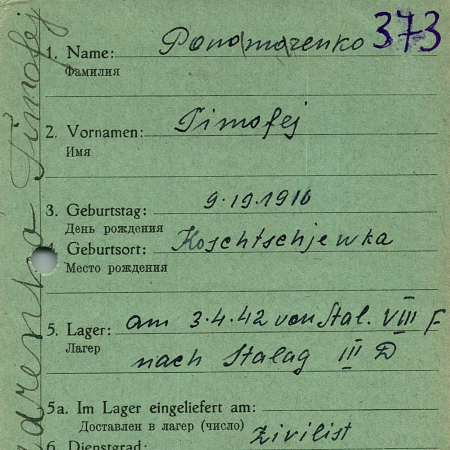 373
1. Name: Ponomarenko
Фамилия
2. Vornamen: Timofej
Имя
3. Geburtstag: 9.19.1916
День рождения
4. Geburtsort: Koschtschjewka
Место рождения
5. Lager: am 3.4.42 von Stal. VIII F
Лагер nach Stalag III D
5a. Im Lager eingeliefert am:
Доставлен в лагер (число)
6. Dienstgrad: Zivilist
arenko Timofej